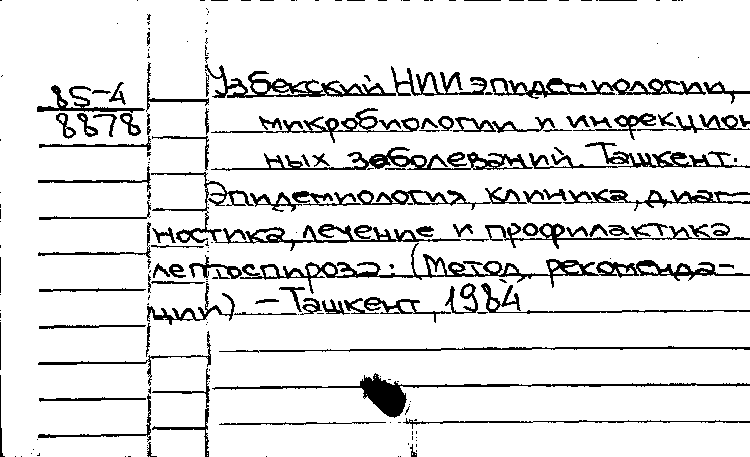 85-4
8878
Узбекский НИИ эпидемиологии,
микробиологии и инфекцион
ных заболеваний. Ташкент.
Эпидемиология, клиника, диаг-
ностика, лечение и профилактика
лептоспироза: (Метод. рекоменда-
ции) – Ташкент, 1984